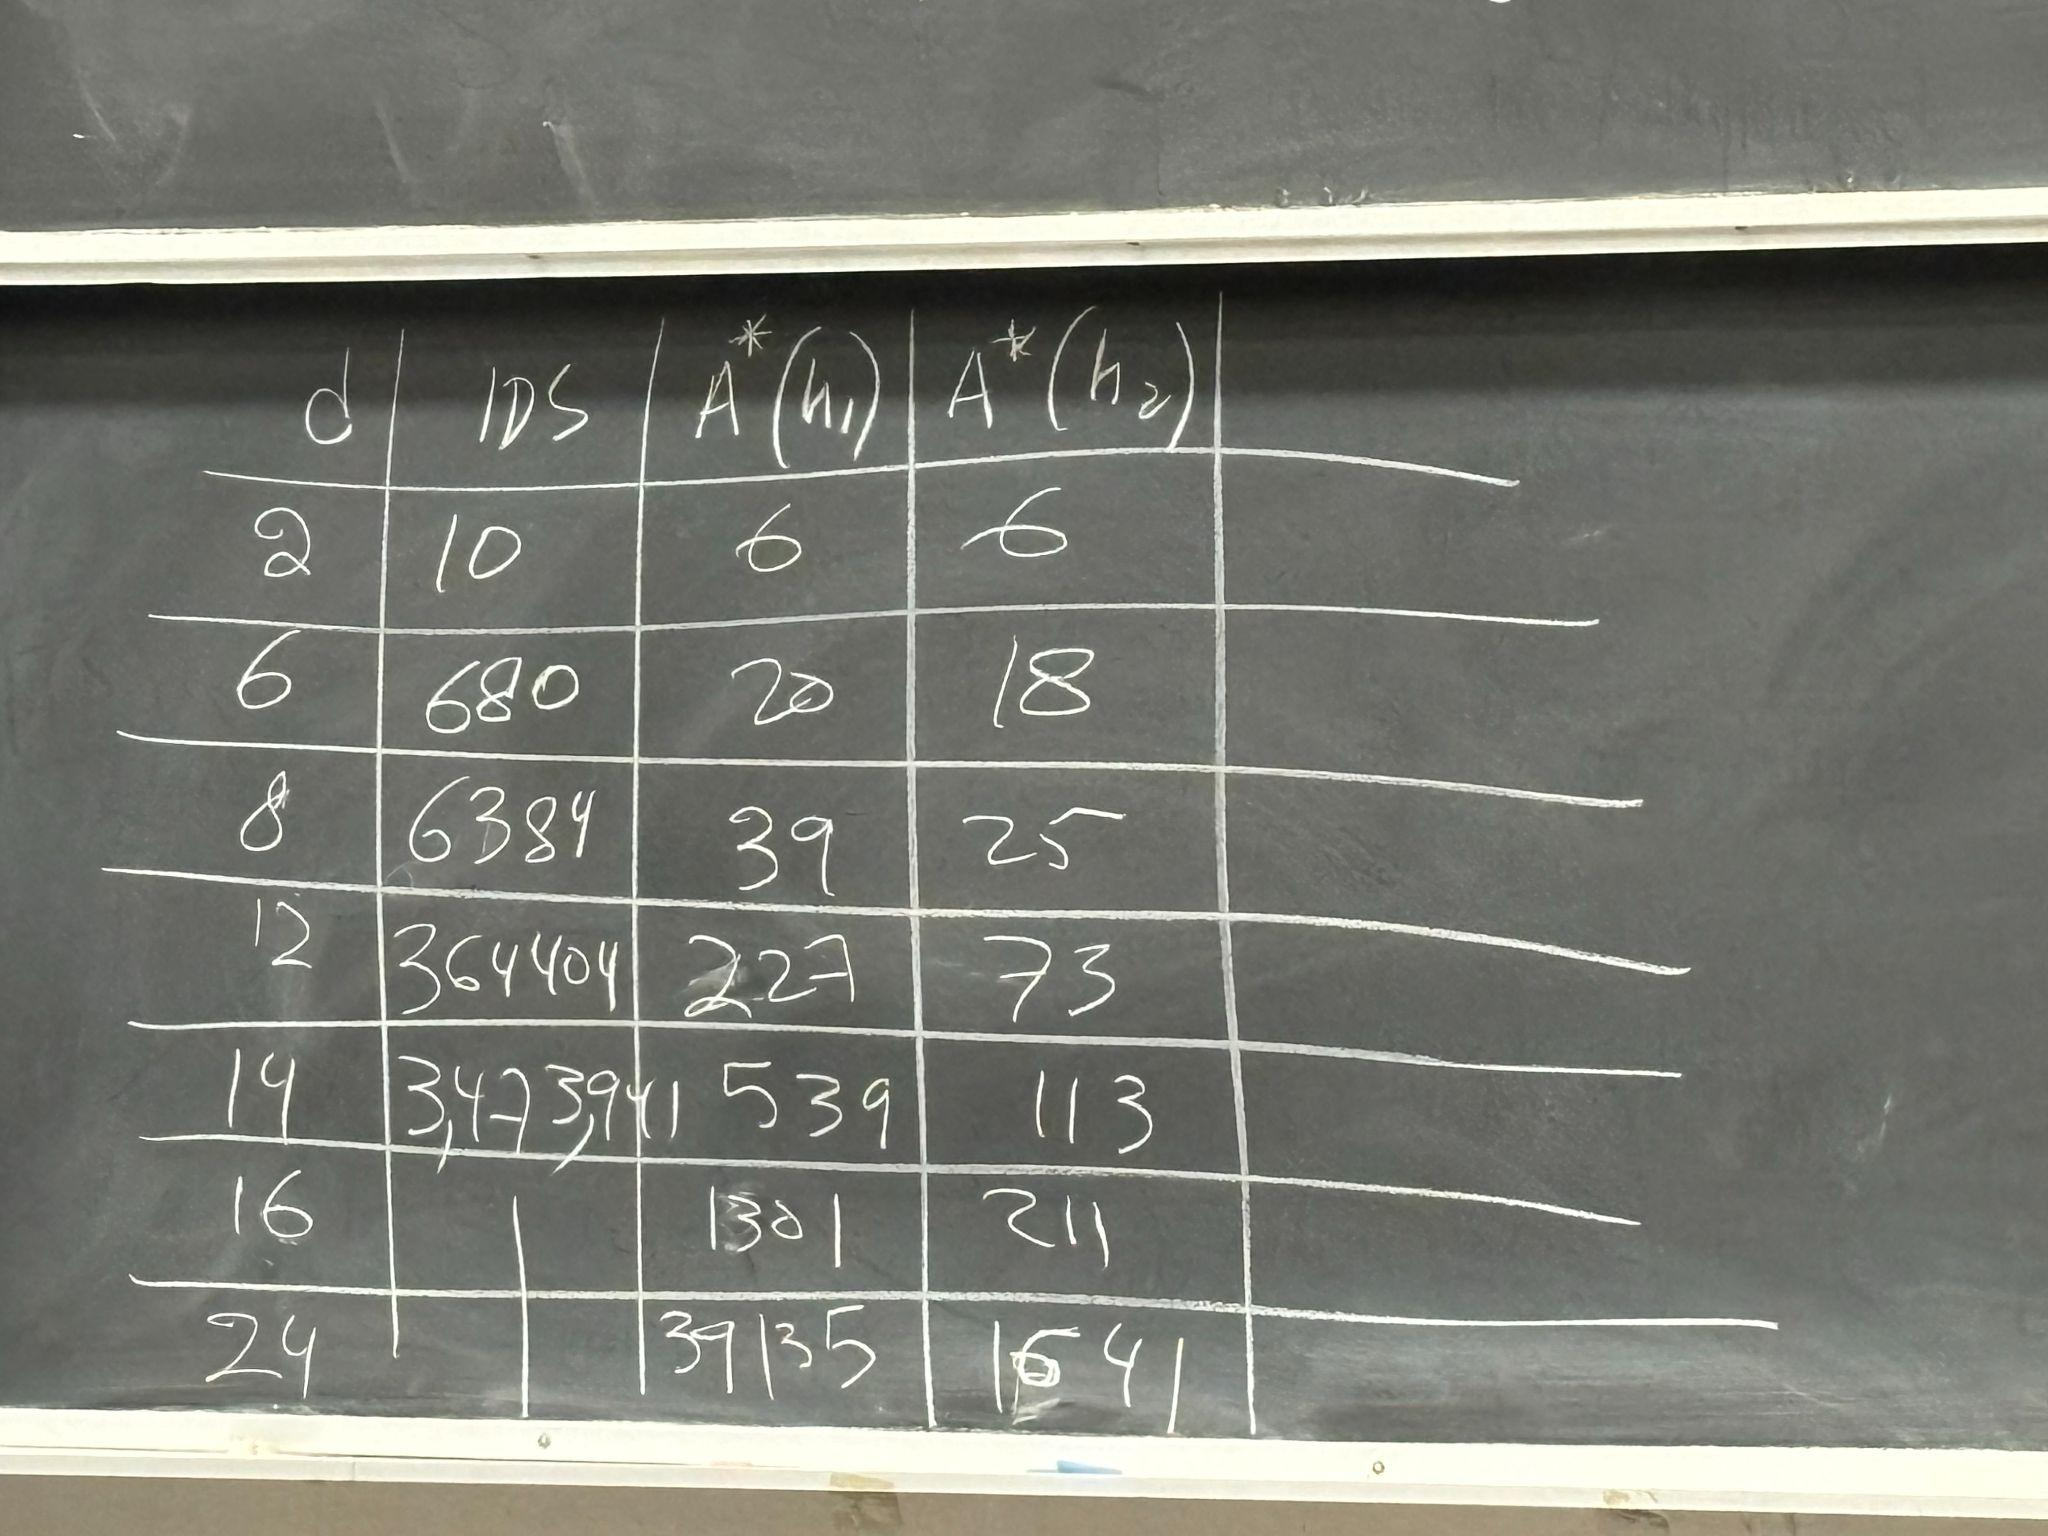 d IDS A*(h1) A*(h2)
2 10 6 6
6 680 20 18
8 6384 39 25
12 364404 227 73
14 3,473,941 539 113
16 1301 211
24 39135 1641